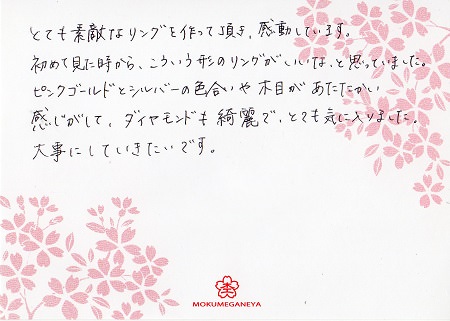 とても素敵なリングを作って頂き、感動しています。
初めて見た時から、こういう形のリングがいいな、と思っていました。
ピンクゴールドとシルバーの色合いや木目があたたかい
感じがして、ダイヤモンドも綺麗で、とても気に入りました。
大事にしていきたいです。
MOKUMEGANEYA